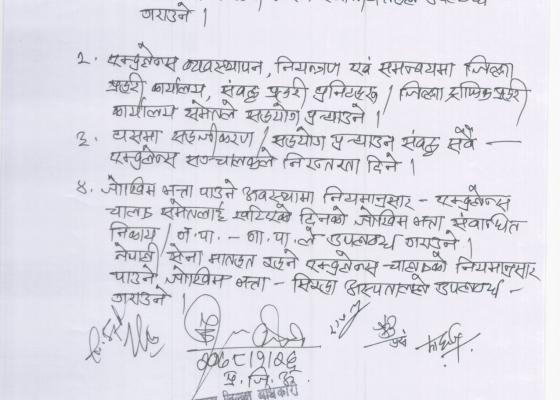 गराउने ।
२. एम्बुलेन्स व्यवस्थापन, नियन्त्रण एवं समन्वयमा जिल्ला
प्रहरी कार्यालय, संवद्ध प्रहरी युनिटहरू / जिल्ला ट्राफिक प्रहरी
कार्यालय समेतले सहयोग पुर्‍याउने ।
३. यसमा सहजीकरण / सहयोग पुर्‍याउन संवद्ध सबै —
एम्बुलेन्स सञ्चालकले निरन्तरता दिने ।
४. जोखिम भत्ता पाउने अवस्थामा नियमानुसार - एम्बुलेन्स
चालक समेतलाई खटिएको दिनको जोखिम भत्ता संवन्धित
निकाय / न.पा. - गा.पा. ले उपलब्ध गराउने ।
नेपाली सेना मातहत रहने एम्बुलेन्स चालकको नियमानुसार
पाउने जोखिम भत्ता - सिरहा अस्पतालले उपलब्ध -
गराउने ।
प्र. जि. अ.